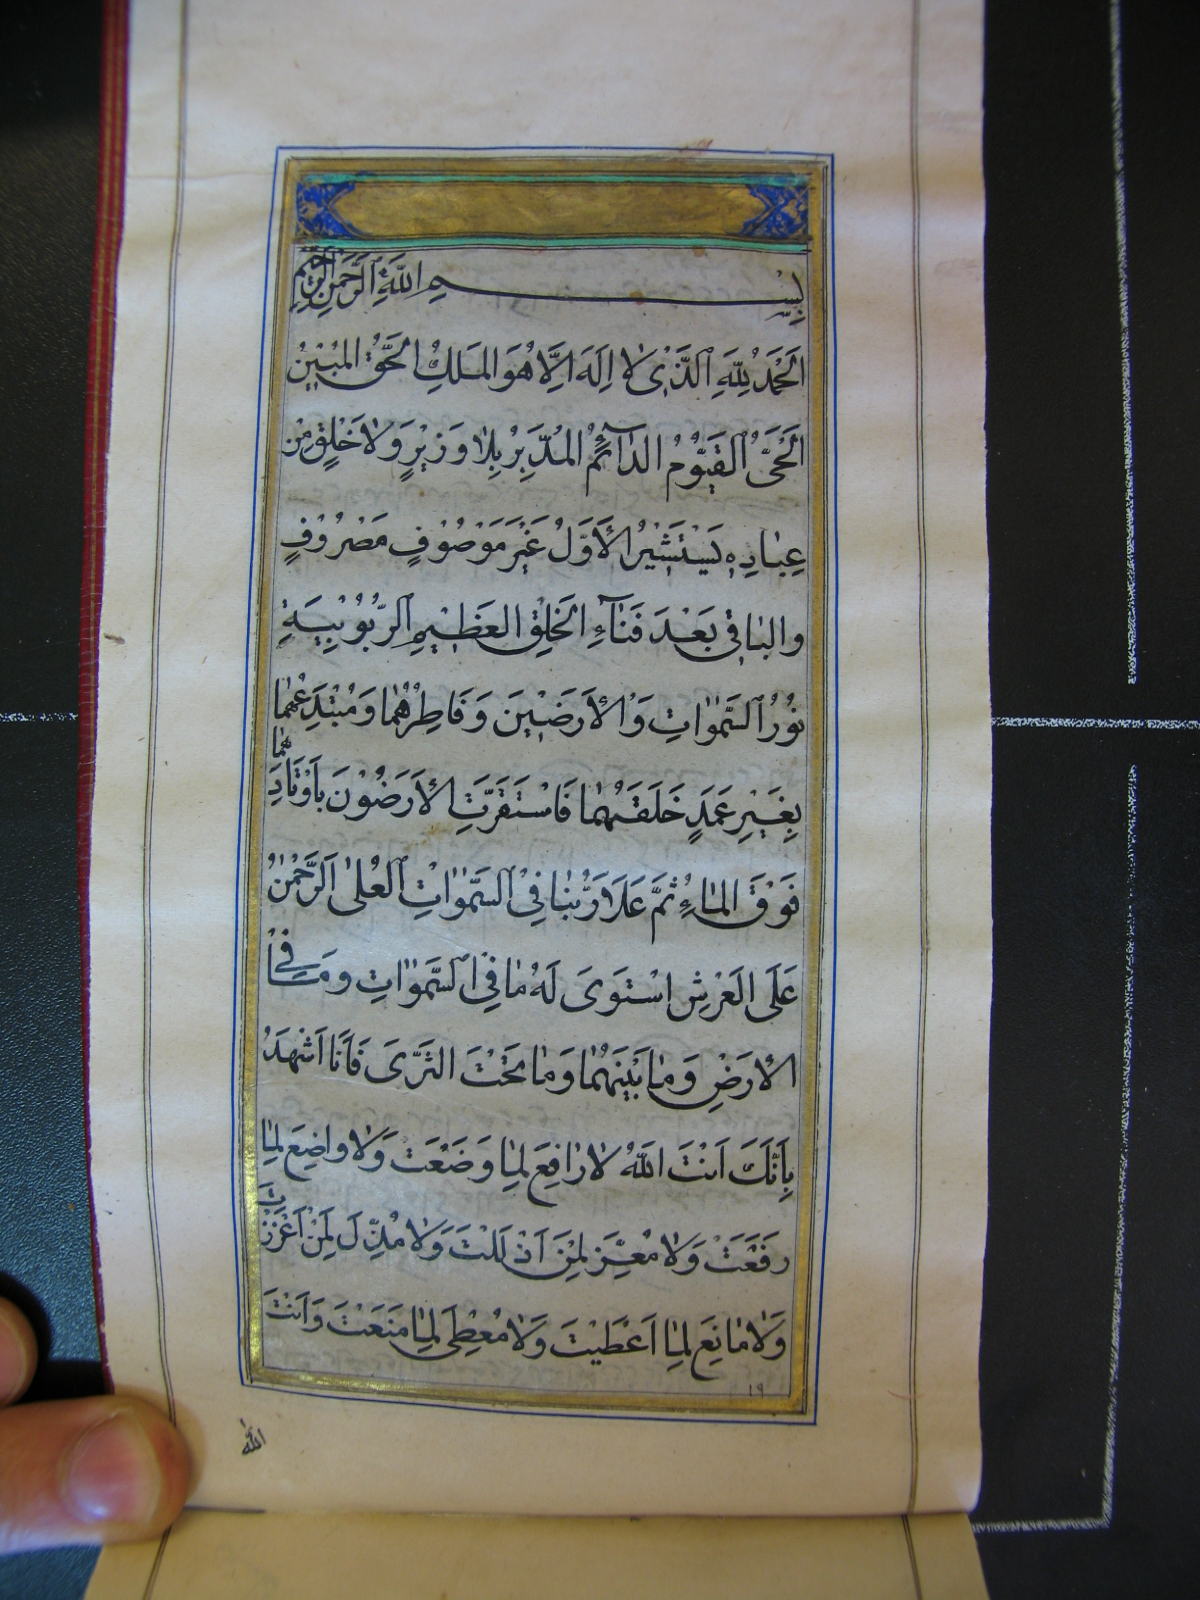 بِسْمِ اللَّهِ الرَّحْمَنِ الرَّحِيمِ
اَلْحَمْدُ لِلّٰهِ الَّذِى لاٰ اِلَهَ اِلَّا هُوَ الْمَلِكُ الْحَقُّ الْمُبِيْنُ
اَلْحَىُّ الْقَيُّوْمُ الدَّآئِمُ الْمُدَبِّرُ بِلاٰ وَزِيْرٍ وَلاٰ خَلْقٍ مِنْ
عِبٰادِهِ يَسْتَشِيْرُ الْاَوَّلُ غَيْرَ مَوْصُوْفٍ مَصْرُوْفٍ
وَالْبٰاقِى بَعْدَ فَنَآءِ الْخَلْقِ الْعَظِيْمِ الرُّبُوْبِيَةِ
نُوْرُ السَّمٰوٰاتِ وَالْاَرَضِيْنَ وَفَاطِرُهُمٰا وَمُبْتَدِعُهُمٰا
بِغَيْرِ عَمَدٍ خَلَقَهُمٰا فَاسْتَقَرَّتِ الْاَرَضُوْنَ بِاَوْتَادِهٰا
فَوْقَ الْمٰاءِ ثُمَّ عَلَا رَبُّنٰا فِى السَّمٰوٰاتِ الْعُلٰى الرَّحْمٰنُ
عَلَى الْعَرْشِ اسْتَوَى لَهُ مٰا فِى السَّمٰوٰاتِ وَمٰا فِى
الْاَرْضِ وَمٰا بَيْنَهُمٰا وَمٰا تَحْتَ الثَّرَى فَاَنَا اَشْهَدُ
بِاَنَّكَ اَنْتَ اللّٰهُ لاٰ رٰافِعَ لِمٰا وَضَعْتَ وَلاٰ وٰاضِعَ لِمٰا
رَفَعْتَ وَلاٰ مُعِزَّ لِمَنْ اَذْلَلْتَ وَلاٰ مُذِلَّ لِمَنْ اَعْزَزْتَ
وَلاٰ مٰانِعَ لِمٰا اَعْطَيْتَ وَلاٰ مُعْطِىَ لِمٰا مَنَعْتَ وَاَنْتَ
١٩
اللّٰه